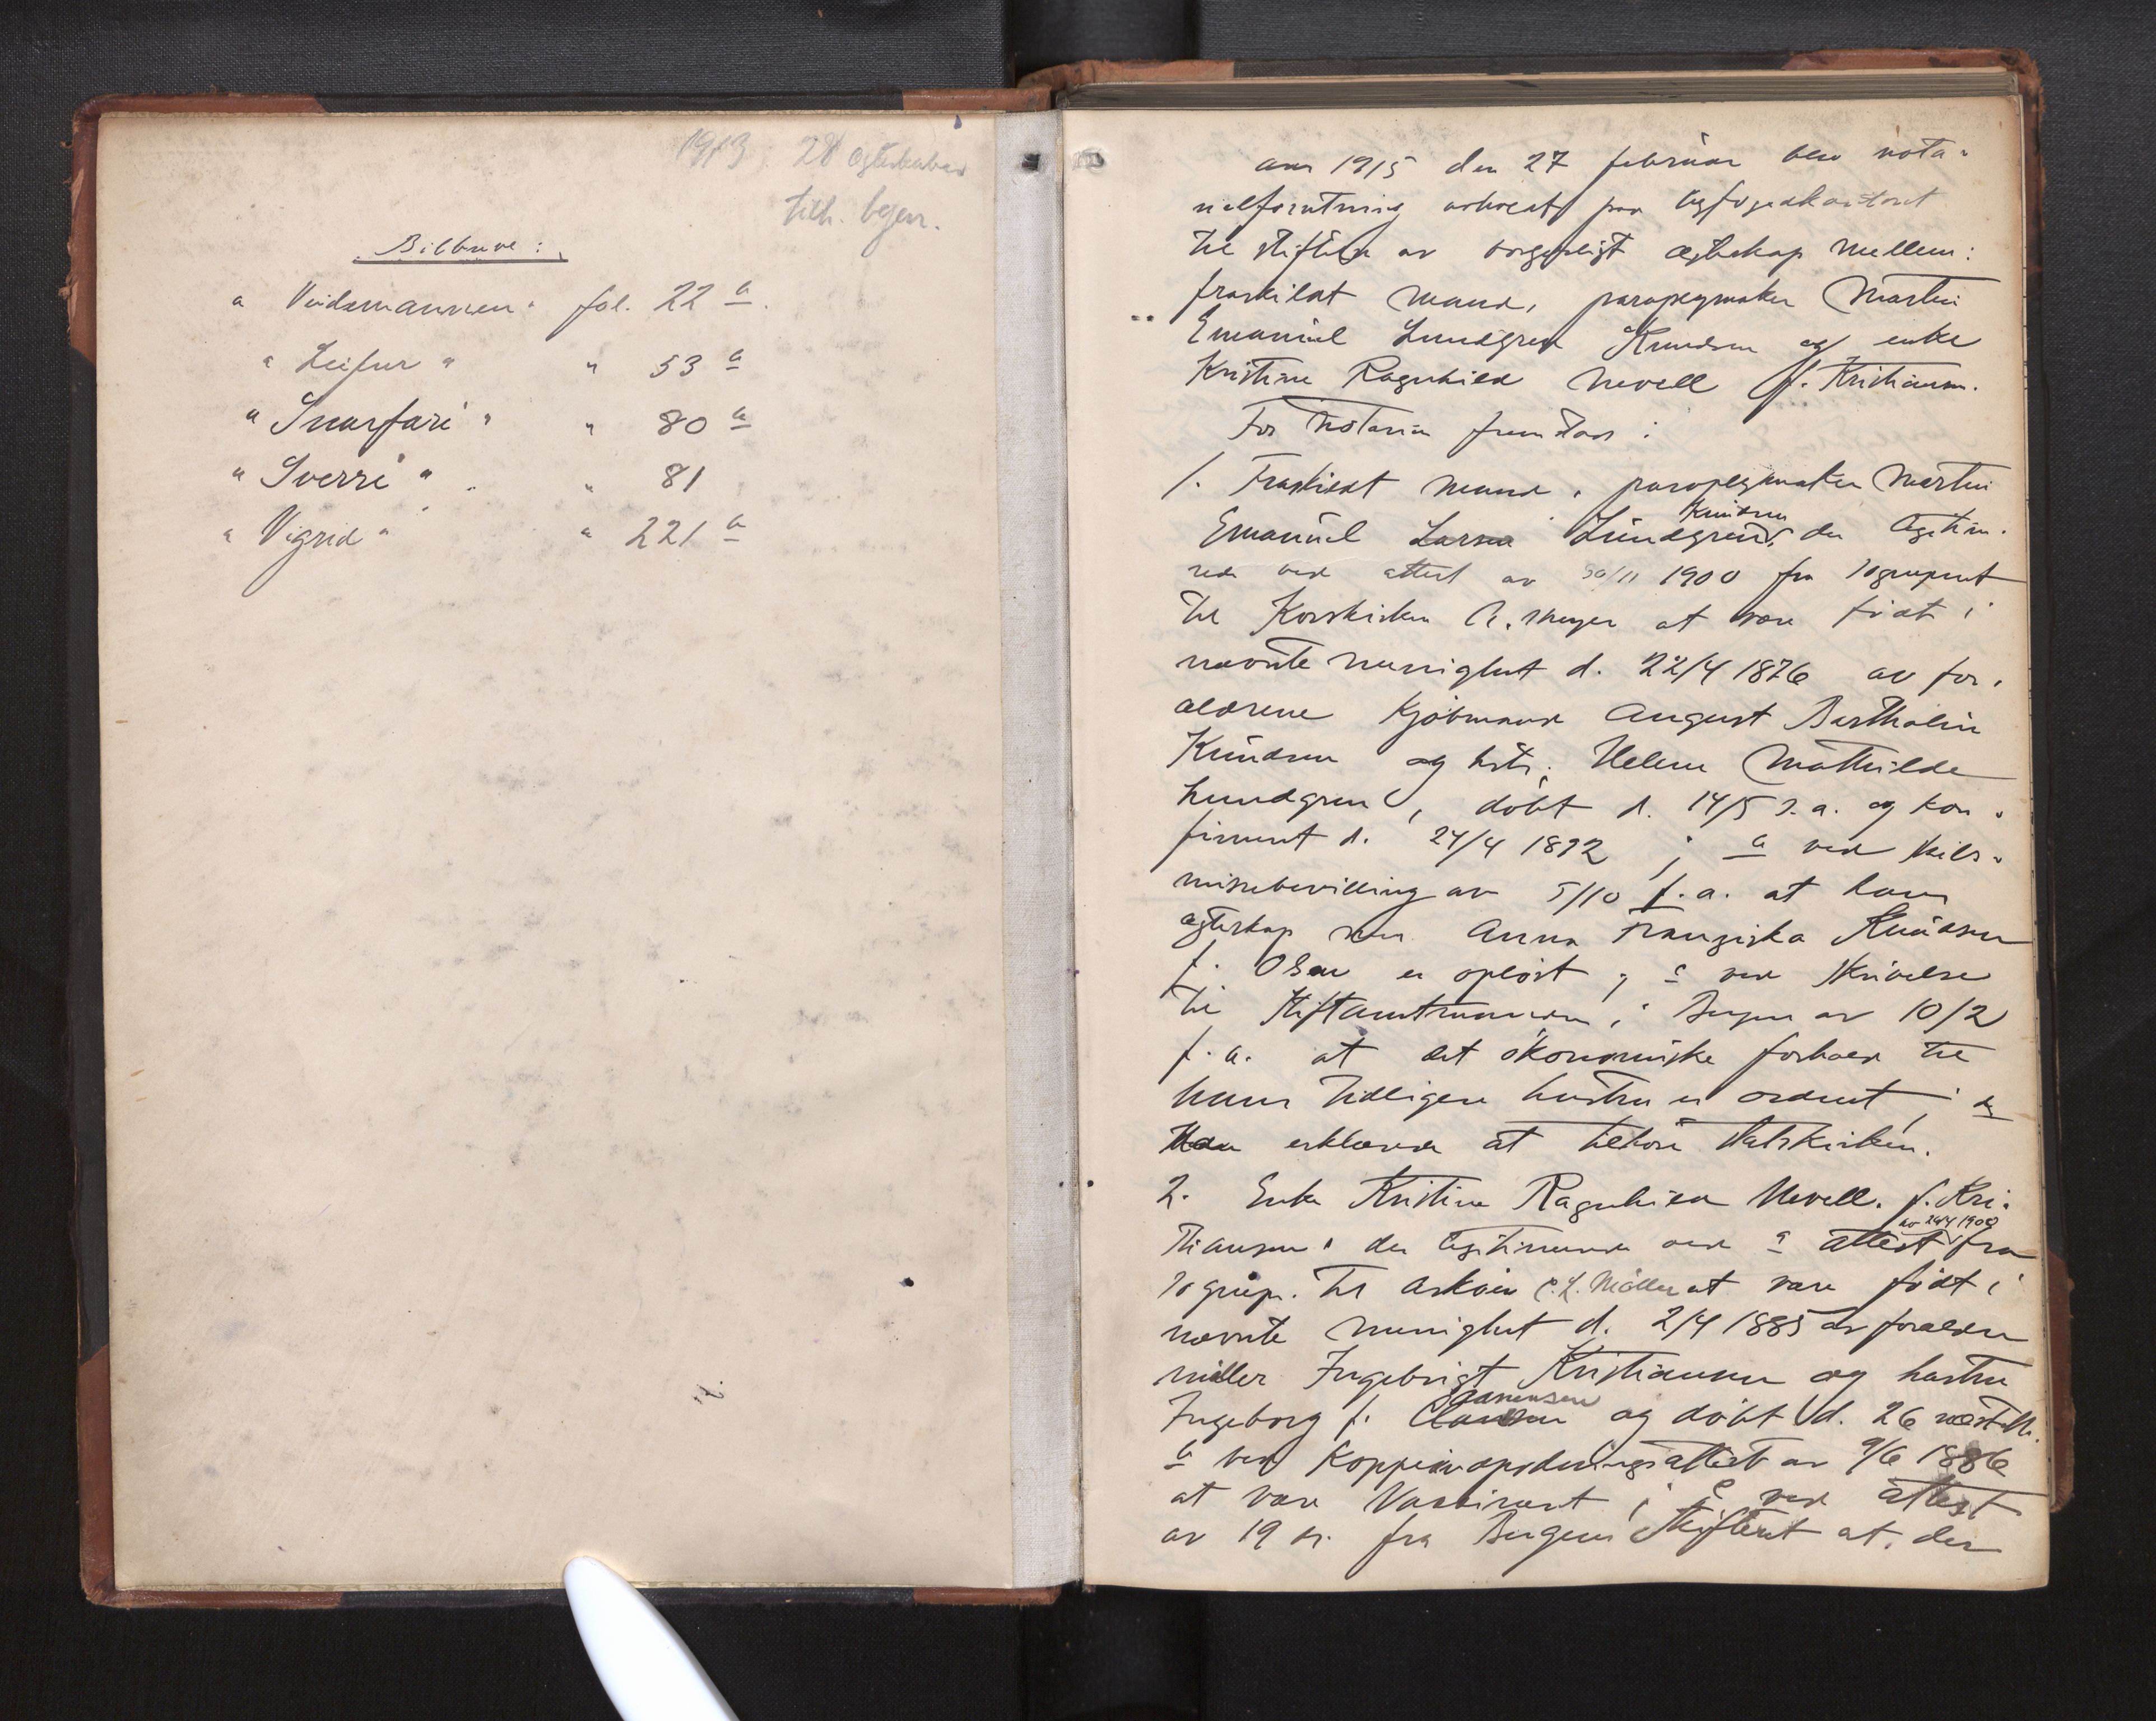 1913 28 egteskaber
tilh. bejen.
Bilbreve:
" Veidemannen " fol. 22 a.
" Leifur " " 53 a
" Snarfari " " 80 a
" Sverre " " 81
" Vigrid " " 221 a
Aar 1915 den 27 februar blev nota-
rialforretning avholdt paa byfogedkontoret
til stiftelse av borgerligt egteskap mellem:
fraskildt mand, paraplymaker Martin
Emanuel Lundgren Knudsen og enke
Kristine Ragnhild Nevell f. Kristiansen.
For Notarius fremstod:
1. Fraskildt mand, paraplymaker Martin
Knudsen
Emanuel Larsen Lundgren, der legitime-
rede ved attest av 30/11 1900 fra sogneprest
til Korskirken Meyer at være født i
nævnte menighet d. 22/4 1876 av for-
ældrene Kjøbmand August Bartholin
Knudsen og hstr. Helene Mathilde
Lundgren, døbt d. 14/5 s.a. og kon-
firmert d. 24/4 1892; a ved skils-
missebevilling av 5/10 f.a. at hans
egteskap med Anna Franziska Knudsen
f. Olsen er opløst; c ved skrivelse
til Stiftamtmanden i Bergen av 10/2
f.a. at det økonomiske forhold til
hans tidligere hustru er ordnet; og
erklærede at tilhøre Statskirken.
2. Enke Kristine Ragnhild Nevell, f. Kri-
av 24/4 1900
stiansen, der legitimerede ved a attest fra
sognepr. til Askøen C.L. Møller at være født i
nævnte menighet d. 2/4 1885 av forældre
møller Ingebrigt Kristiansen og hustru
Ingeborg f. Clausen og døbt d. 26 næstefter.
b ved Koppeindpodningsattest av 9/6 1886
at være Vaccineret; c ved attest
av 19 ds. fra Bergens Skifteret at der